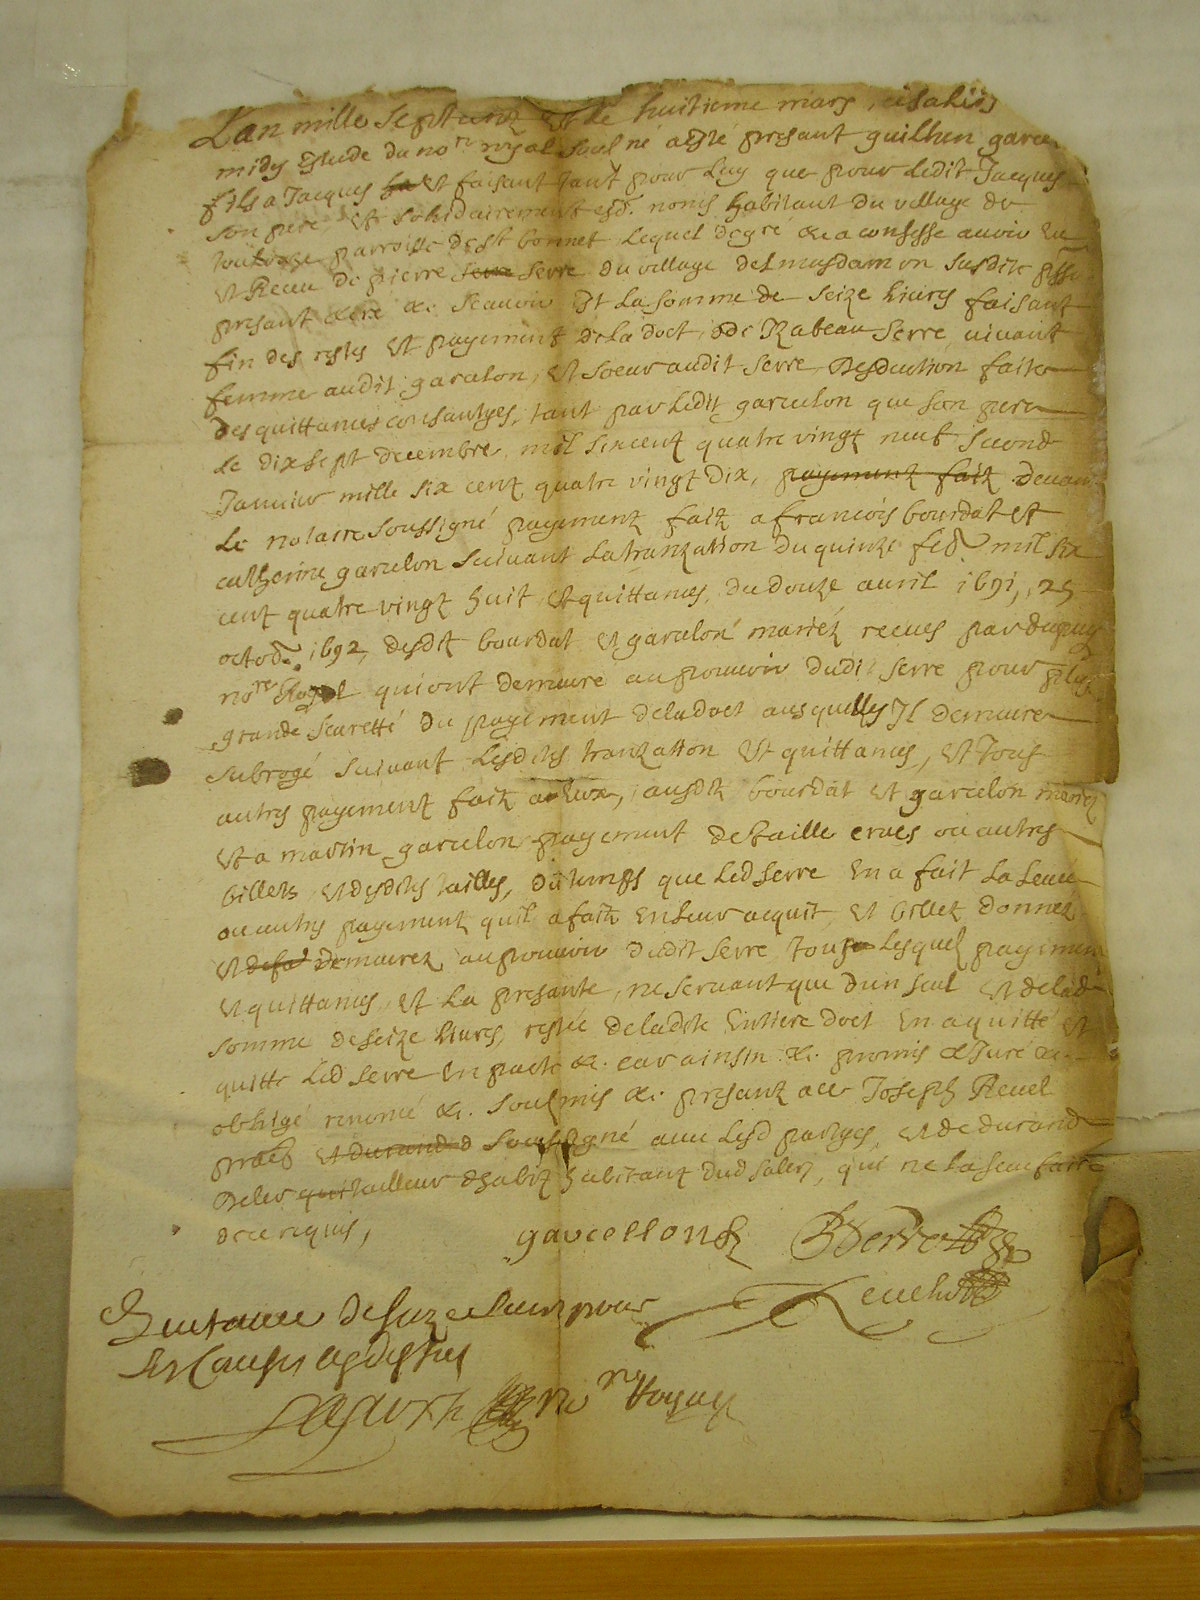 L'an mille Sept centz et le huitieme mars, a salers
midy Estude du no.re royal sousl né a esté presant guilhen garce
fils a Jacques et faisant tant pour luy que pour ledit Jacques
son pere, et solidairement esd. noms habitant du village de
parroisse de St bonnet lequel de gré &c a confesse avoir eu
et Receu de pierre Serre du village delmasdamon susdite
presant &c scavoir est la somme de seize livres faisant
fin des restes et payement de la doct de Rabeau Serre vivant
femme audit garcelon, et soeur audit Serre, Desduction faite
des quittances tant par ledit garcelon que son pere
le dix sept decembre mil six centz quatre vingt neuf second
Janvier mille six centz quatre vingt dix, payement fait devant
le notaire soussigné payement faitz a francois bourdat et
catherine garcelon suivant la tranzation du quinze feb. mil six
cent quatre vingt huit et quittances du douze avril 1691, 25
octob. 1692, desditz bourdat et garcelon mariéz receues par dupuy
no.re Royal qui ont demuré au pouvoir dudit Serre pour plus
grande seuretté du payement de la doct ausquelles Il demeure
subrogé suivant lesdites tranzation et quittances, et tous
autres payementz faitz ausditz bourdat et garcelon mariez
et a martin garcelon payement de taille ou autres
billets et desdites tailles, du temps que led Serre en a fait la levée
ou autres payementz quil a faitz en leur acquit, et billetz donnez
et demeurez au pouvoir dudit Serre tous lesquelz payementz
et quittances et la presante, ne servant que d'un seul et de lad
somme de seize livres, restée de ladite Entiere doct en a quitté et
quitte led Serre &c. car ainsin &c. promis & Juré &c.
obligé renoncé &c. soubmis &c. presantz Joseph Revel
et durand soussigné avec lesd partyes, et de durand
tailleur d'habitz habitant dud salers, qui ne la sceu faire
de ce requis,
garcellon BSerre
Revel
quitance de seze livres pour
les causes dites
no.re Royal